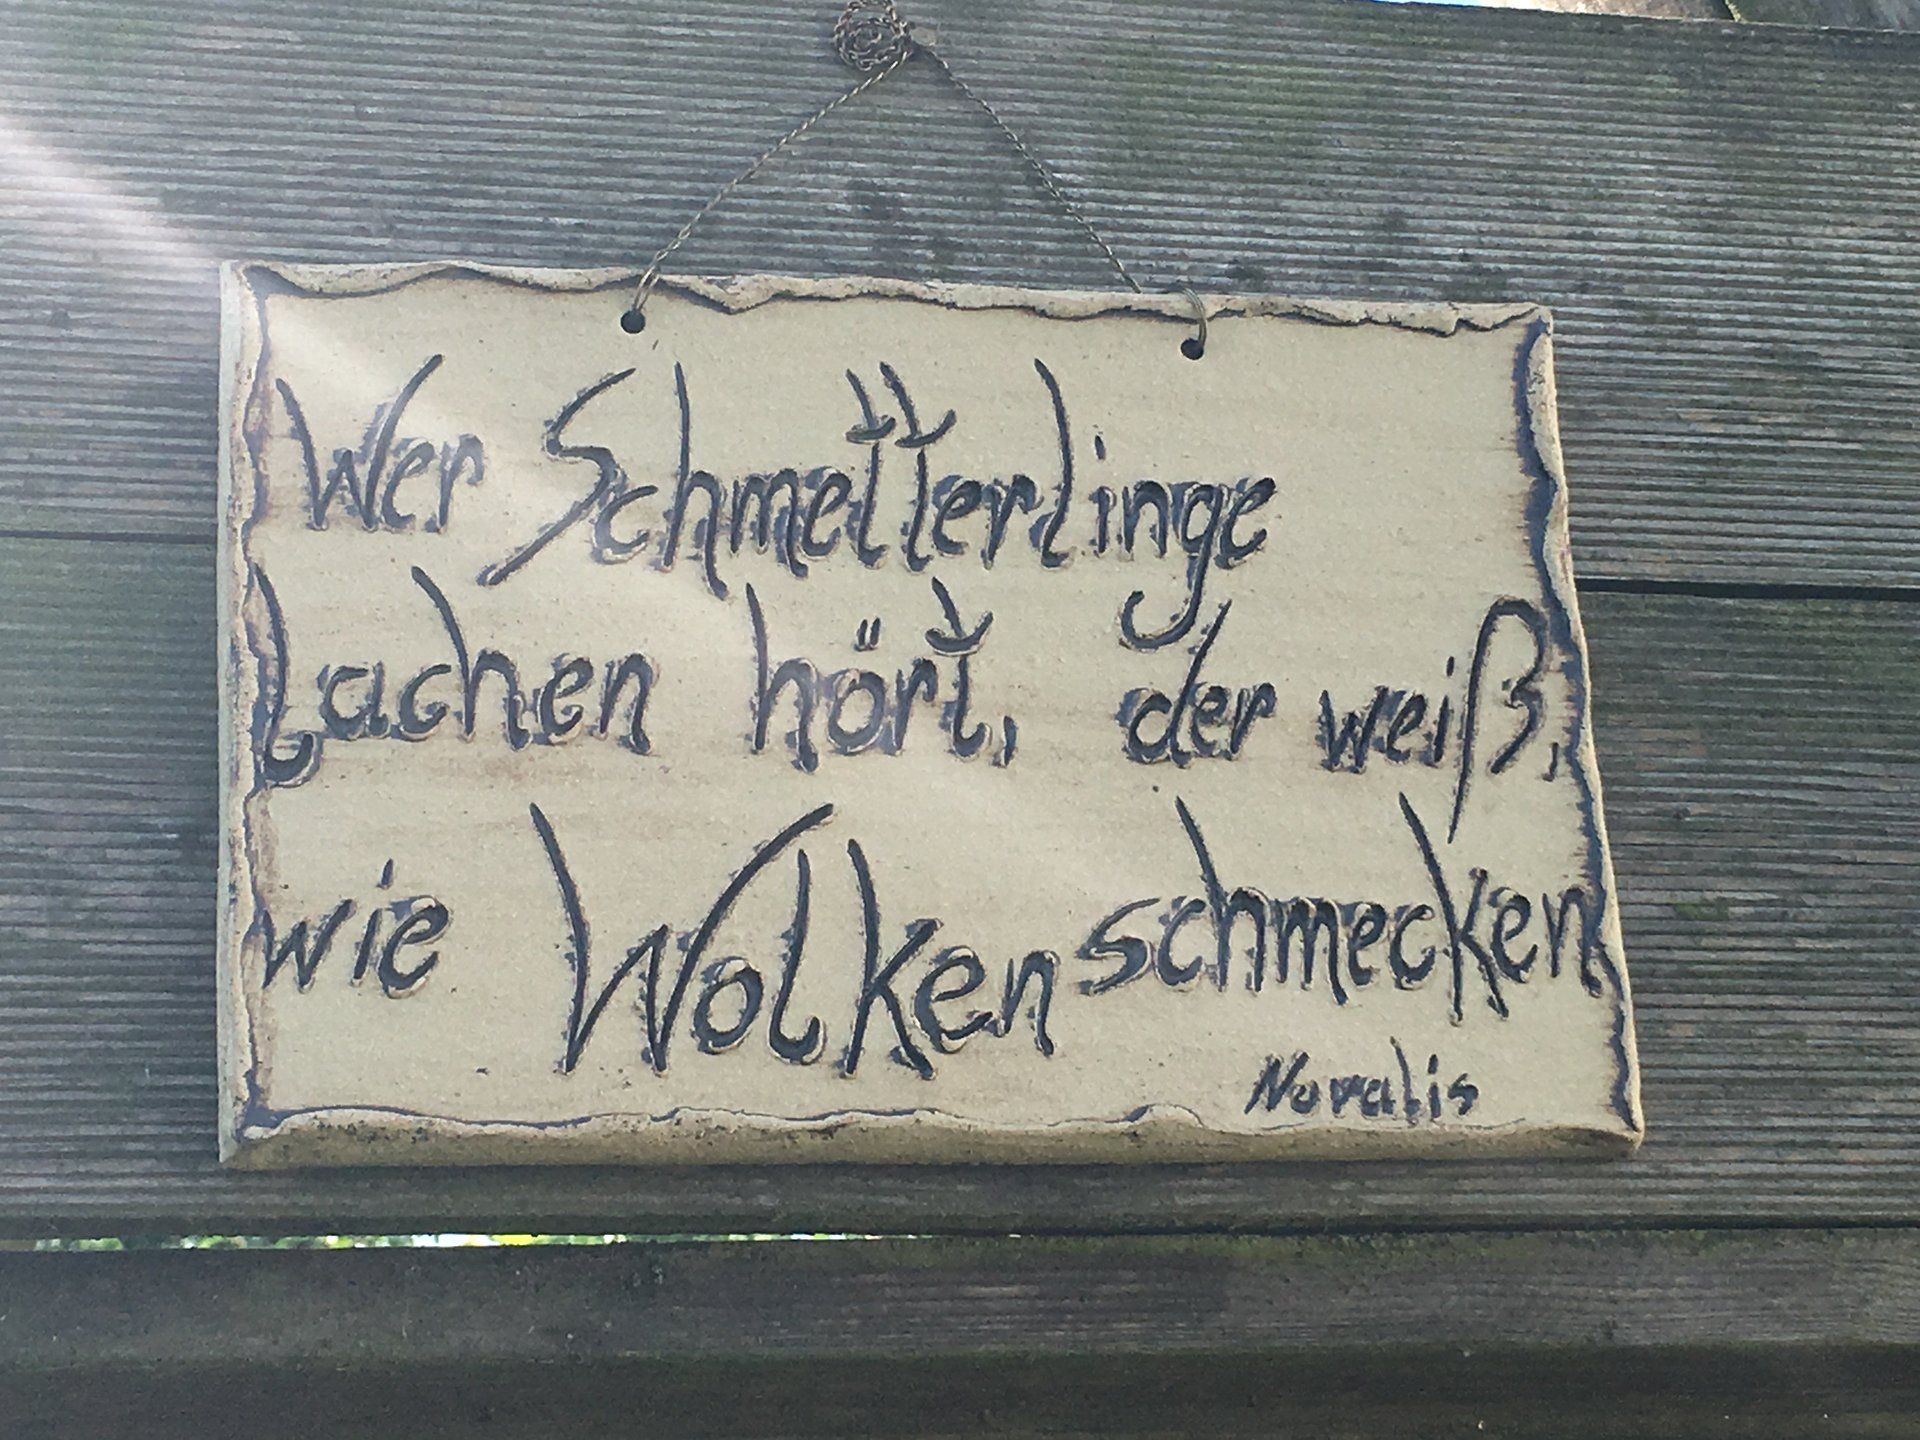 Wer Schmetterlinge
Lachen hört, der weiß,
wie Wolken schmecken
Novalis